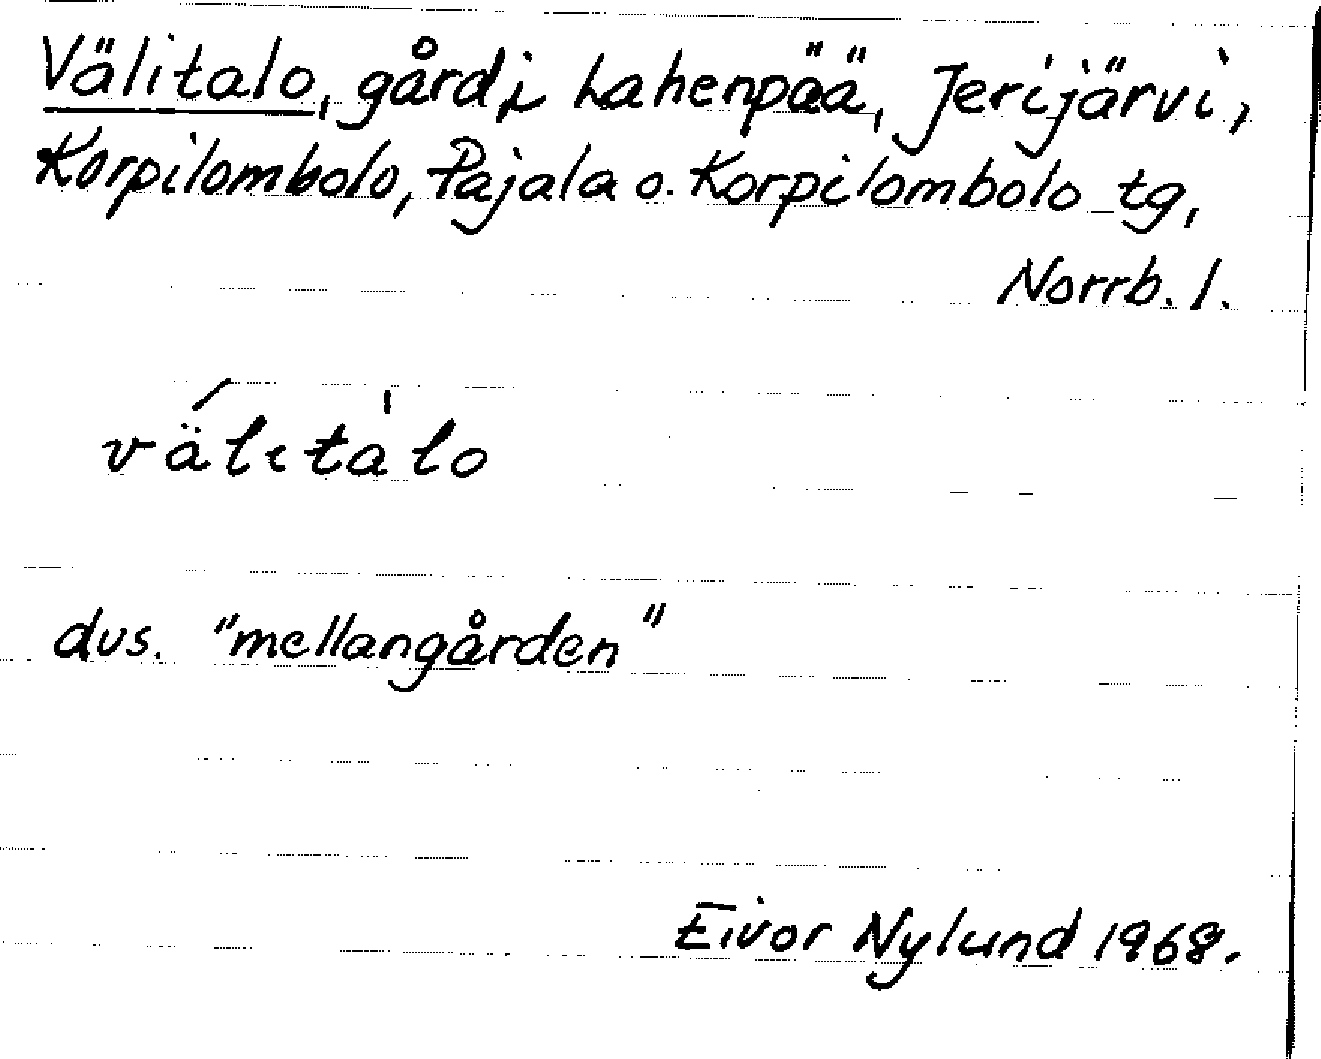 Välitalo, gård i Lahenpää, Jerijärvi,
Korpilombolo, Pajala o. Korpilombolo tg,
Norrb. l.
välitalo
dvs. "mellangården"
Eivor Nylund 1968.